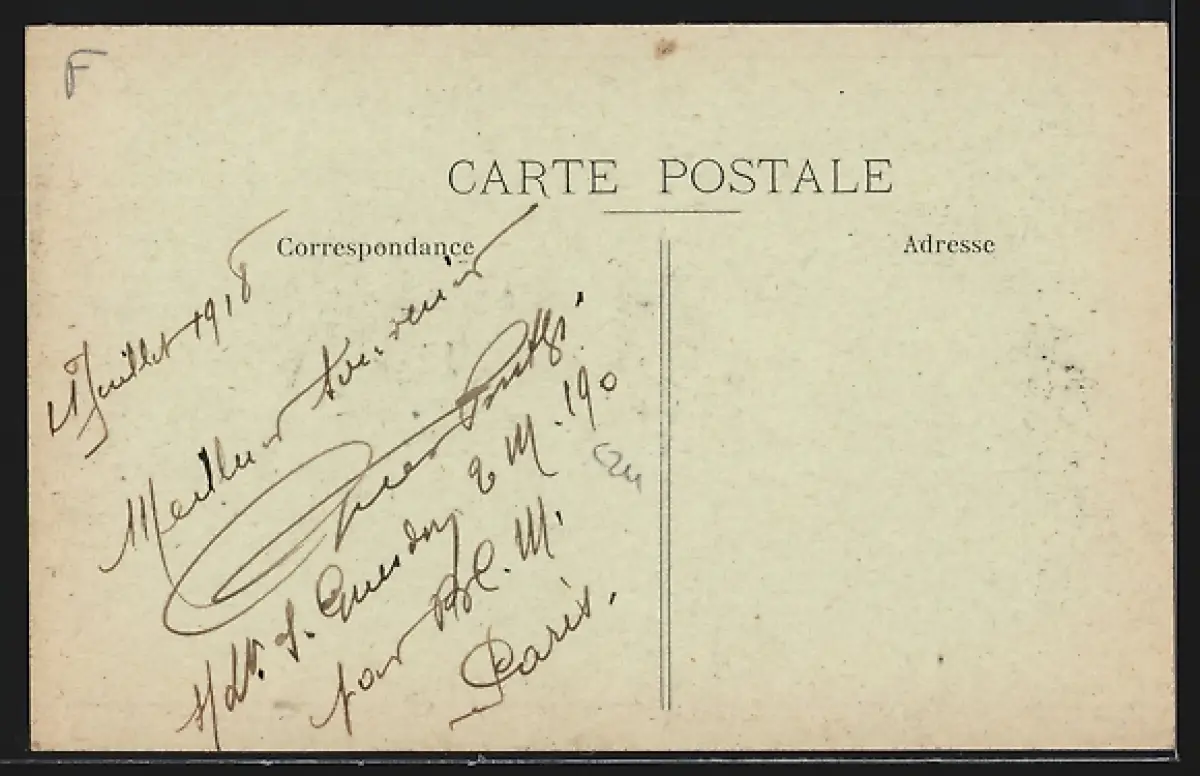 F
CARTE POSTALE
Correspondance
Adresse
Juillet 1918
Meilleur souvenir
S/Lt. J. Guesdon
T M. 190
par B.C.M.
Paris.